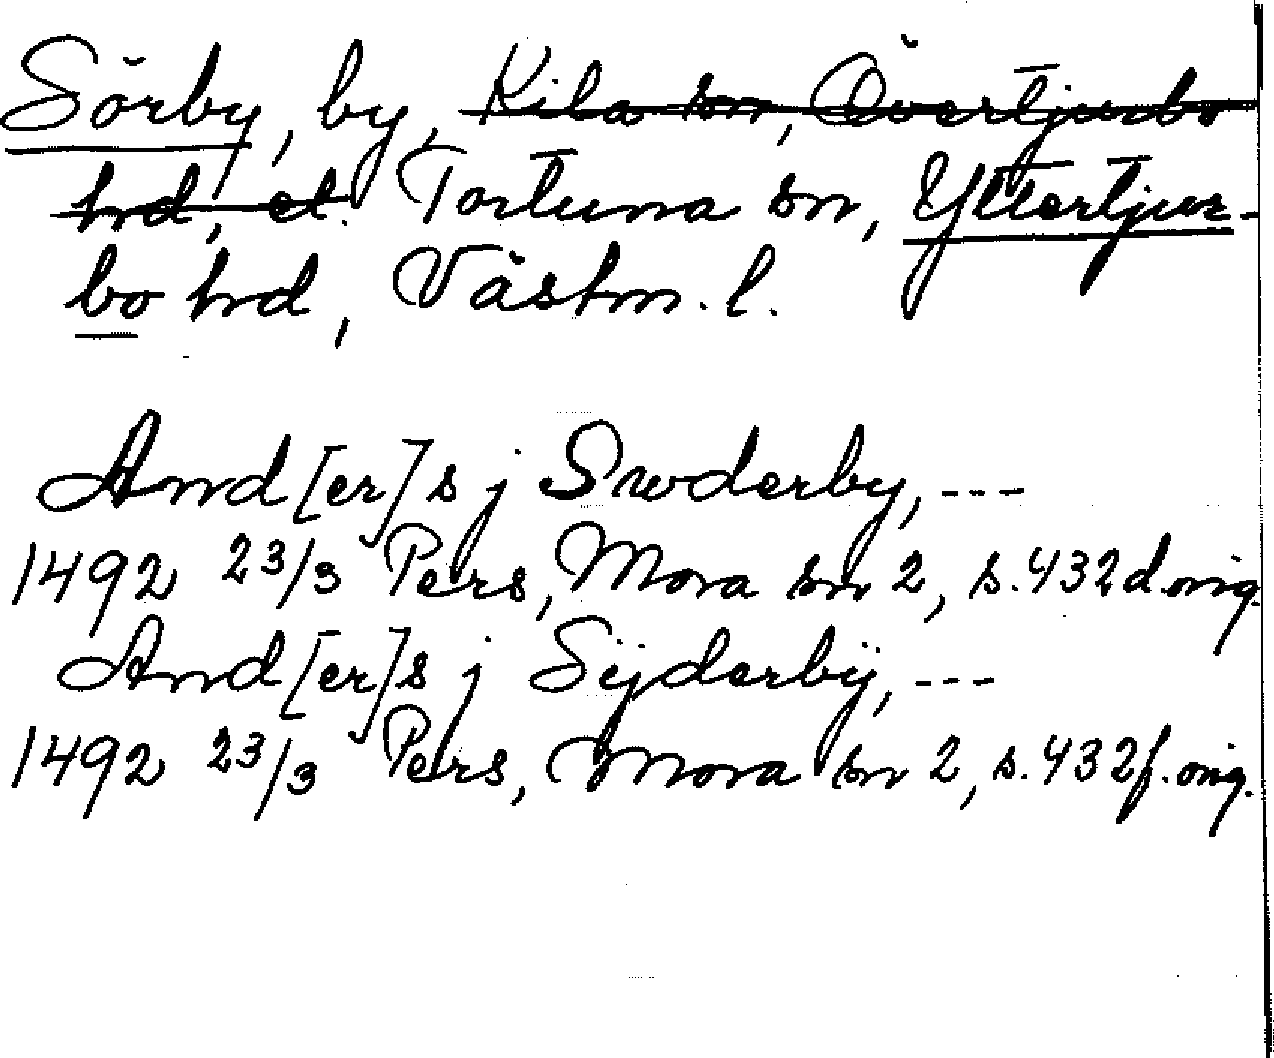 Sörby, by, Kila sn, Övertjurbo
hrd, el. Tortuna sn, Yttertjur-
bo hrd, Västm. l.
And[er]s j Swderby, ---
1492 23/3 Pers, Mora sn 2, s. 432 d. orig.
And[er]s j Syderbÿ, ---
1492 23/3 Pers, Mora sn 2, s. 432 f. orig.